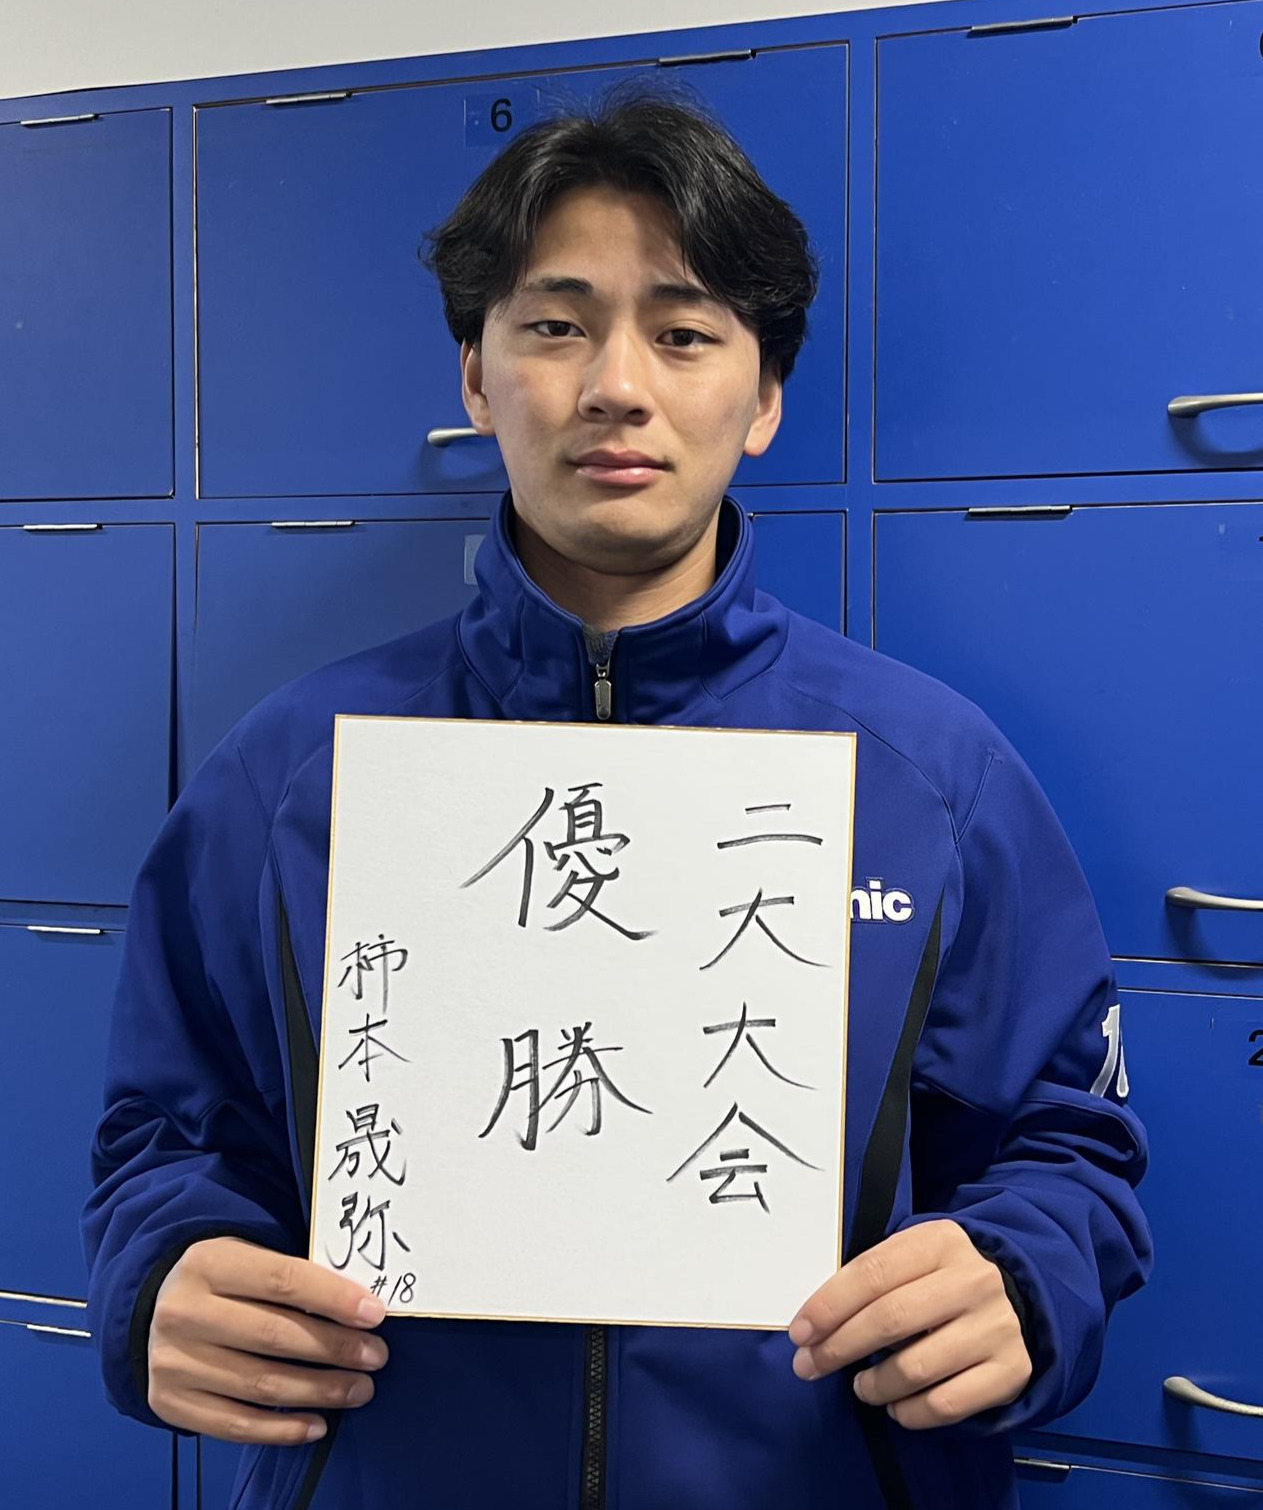 6
二大大会
優勝
柿本晟弥
#18
nic
2